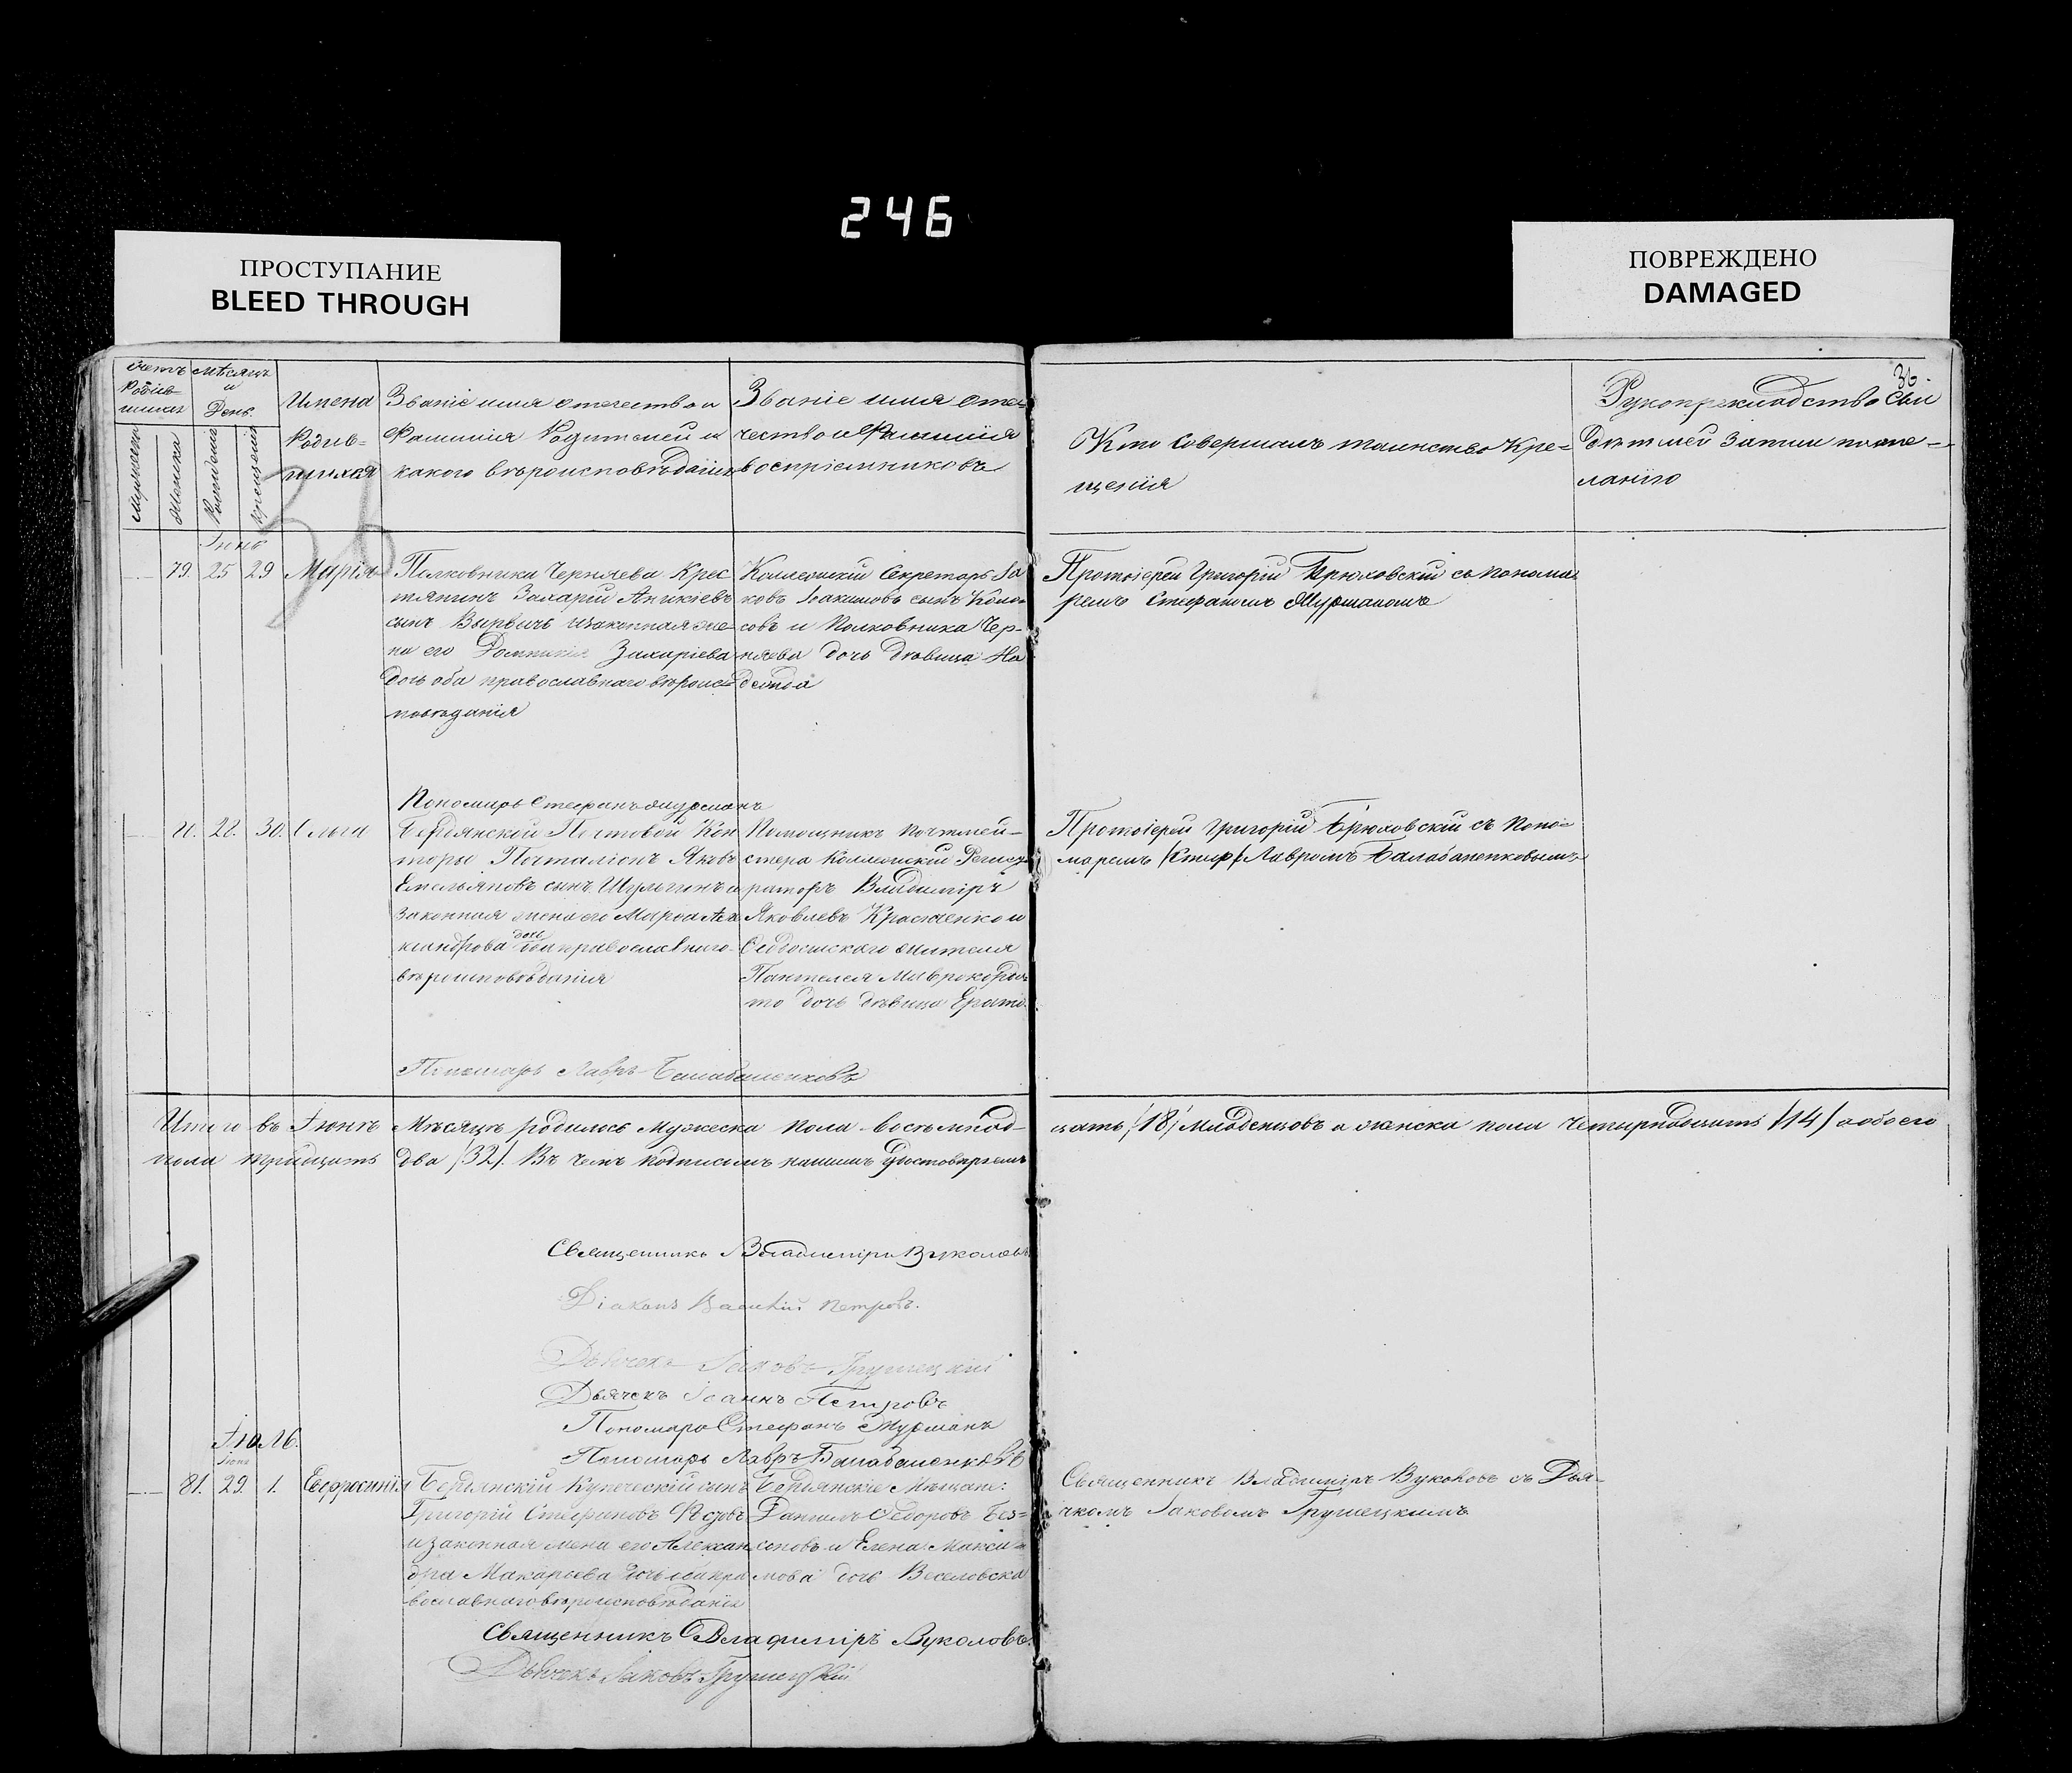 246
ПРОСТУПАНИЕ
BLEED THROUGH
ПОВРЕЖДЕНО
DAMAGED
36.
Счетъ
Родив-
шихся
Мѣсяцъ
и
День.
Мужеска
Женска
Рожденія
Крещенія
Имена
Родив=
шихся
Званіе имя отчество и
Фамилія Родителей и
какого вѣроисповѣданія
Званіе имя отче=
чество и Фамилія
воспріемниковъ
Кто совершалъ таинство Кре=
щенія
Рукоприкладство сви
дѣтелей записи по же-
ланію
36
Іюнь
79. 25 29 Марія
Полковника Черняева Крес
тянинъ Захарій Аникіевъ
сынъ Вырвичъ и законная же-
на его Домникія Захаріева
дочь оба православнаго вѣроис-
повѣданія
Коллежскій Секретарь Іа
ковъ Іакимовъ сынъ Коло-
совъ и Полковника Чер-
няева дочь дѣвица На
дежда
Протоіерей Григорій Брюховскій съ понома-
ремъ Стефаномъ Мурманомъ
Пономарь Стефанъ Мурманъ
28. 30. Ольга
Бердянской Почтовой Кон
торы Почталіонъ Яковъ
Емельяновъ сынъ Шульгинъ и
законная жена его Марѳа Але
ксандрова дочь оба православнаго
вѣроисповѣданія
Помощникъ почтмей-
стера Коллежскій Регист-
раторъ Владиміръ
Яковлевъ и
Ѳеодосійскаго жителя
Пантелея Маврокорда-
то дочь дѣвица Ерати.
Протоіерей Григорій Брюховскій съ поно=
маремъ /Стеф/ Лавромъ Балабаненковымъ
Пономарь Лавръ Балабаненковъ
Итого въ Іюнѣ Мѣсяцѣ родилось мужеска пола восѣмнад-
цать /18/ младенцовъ а женска пола четырнадцать /14/ а обоего
пола тридцать два /32/. Въ чемъ подписомъ нашимъ удостовѣряемъ
Священникъ Владиміръ Вуколовъ.
Діаконъ Василій Петровъ.
Дьячекъ Іаковъ Грушецкій
Дьячекъ Іоаннъ Петровъ
Пономарь Стефанъ Мурманъ
Пономарь Лавръ Балабаненковъ
Іюль.
Іюня
81. 29. 1. Евфросинія
Бердянскій Купеческій сынъ
Григорій Стефановъ
и законная жена его Алексан
дра Макарьева дочь оба пра
вославнаго вѣроисповѣданія
Бердянскіе Мѣщане:
Даніилъ Ѳедоровъ Без-
соновъ и Елена Макси-
мова дочь Веселовска
Священникъ Владиміръ Вуколовъ съ Дья-
чкомъ Іаковомъ Грушецкимъ
Священникъ Владиміръ Вуколовъ.
Дьячекъ Іаковъ Грушецкій